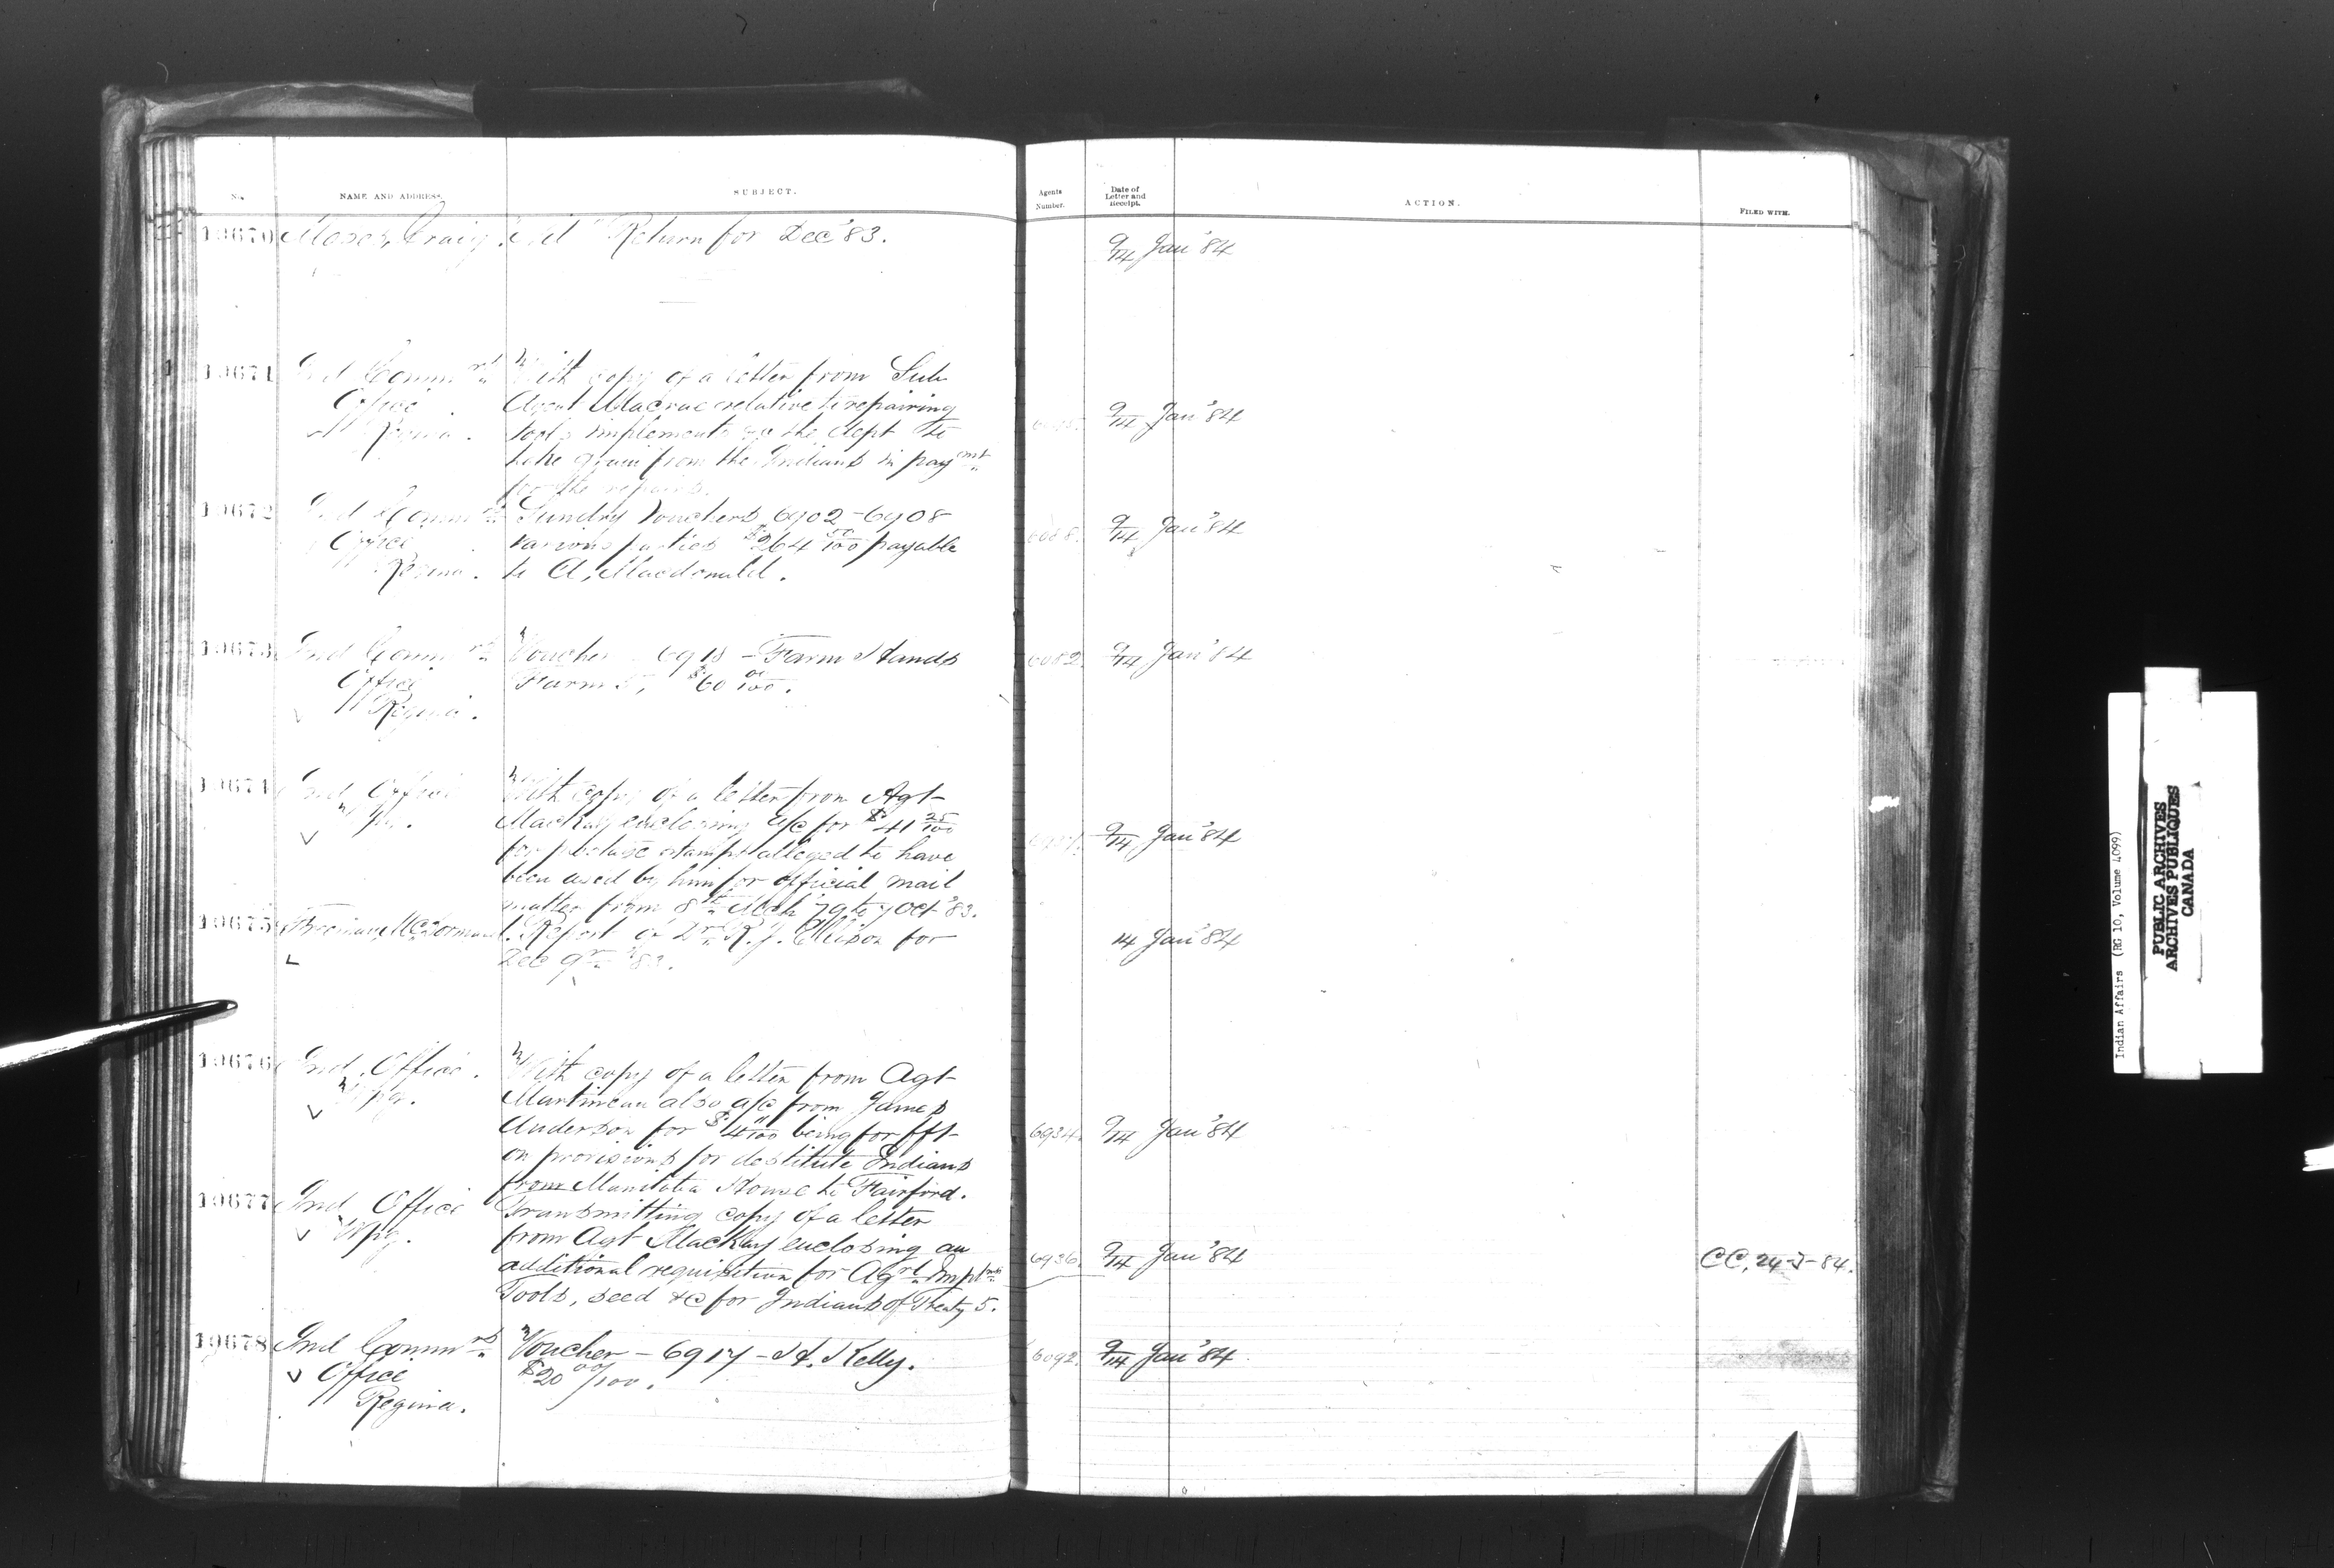 No. NAME AND ADDRESS. SUBJECT. Agents Number. Date of Letter and Receipt. ACTION. FILED WITH.
19670 Moses Craig. Return for Dec '83. 9/14 Jan '84
19671 Ind Commrs With copy of a letter from Sub
Office Agent Macrae relative to repairing 9/14 Jan '84
Regina. tools implements the dept to
take grain from the Indians in payemt
for the repairs.
19672 Ind Commrs Sundry Vouchers 6902-6908 9/14 Jan '84
Office various parties $264 50/100 payable
Regina. to A. Macdonald.
19673 Ind Commrs Voucher 6918 - Farm Hands 6082 9/14 Jan '84
Office Farm 5, $60 00/100.
Regina.
19674 Ind Office With copy of a letter from Agt
Wpg. Mackay enclosing a/c for $41 25/100 9/14 Jan '84
for postage stamps alleged to have
been used by him for official mail
matter from 8th Mch '79 to 7 Oct '83.
19675 Report of Dr R. J. Ellison for 14 Jan '84
Dec '83.
19676 Ind. Office. With copy of a letter from Agt
Wpg. Martineau also a/c from James
Anderson for $4 "/100 being for fft 6934. 9/14 Jan '84
on provisions for destitute Indians
from Manitoba House to Fairford.
19677 Ind Office Transmitting copy of a letter
Wpg. from Agt Mackay enclosing an 6936. 9/14 Jan '84 CC, 24-J-84.
additional requisition for Agrl Impts
Tools, seed &c for Indians of Treaty 5.
19678 Ind Commrs Voucher - 6917 - H. Kelly. 6092. 9/14 Jan '84
Office $20 00/100.
Regina.
Indian Affairs (RG 10, Volume 4099)
PUBLIC ARCHIVES
ARCHIVES PUBLIQUES
CANADA